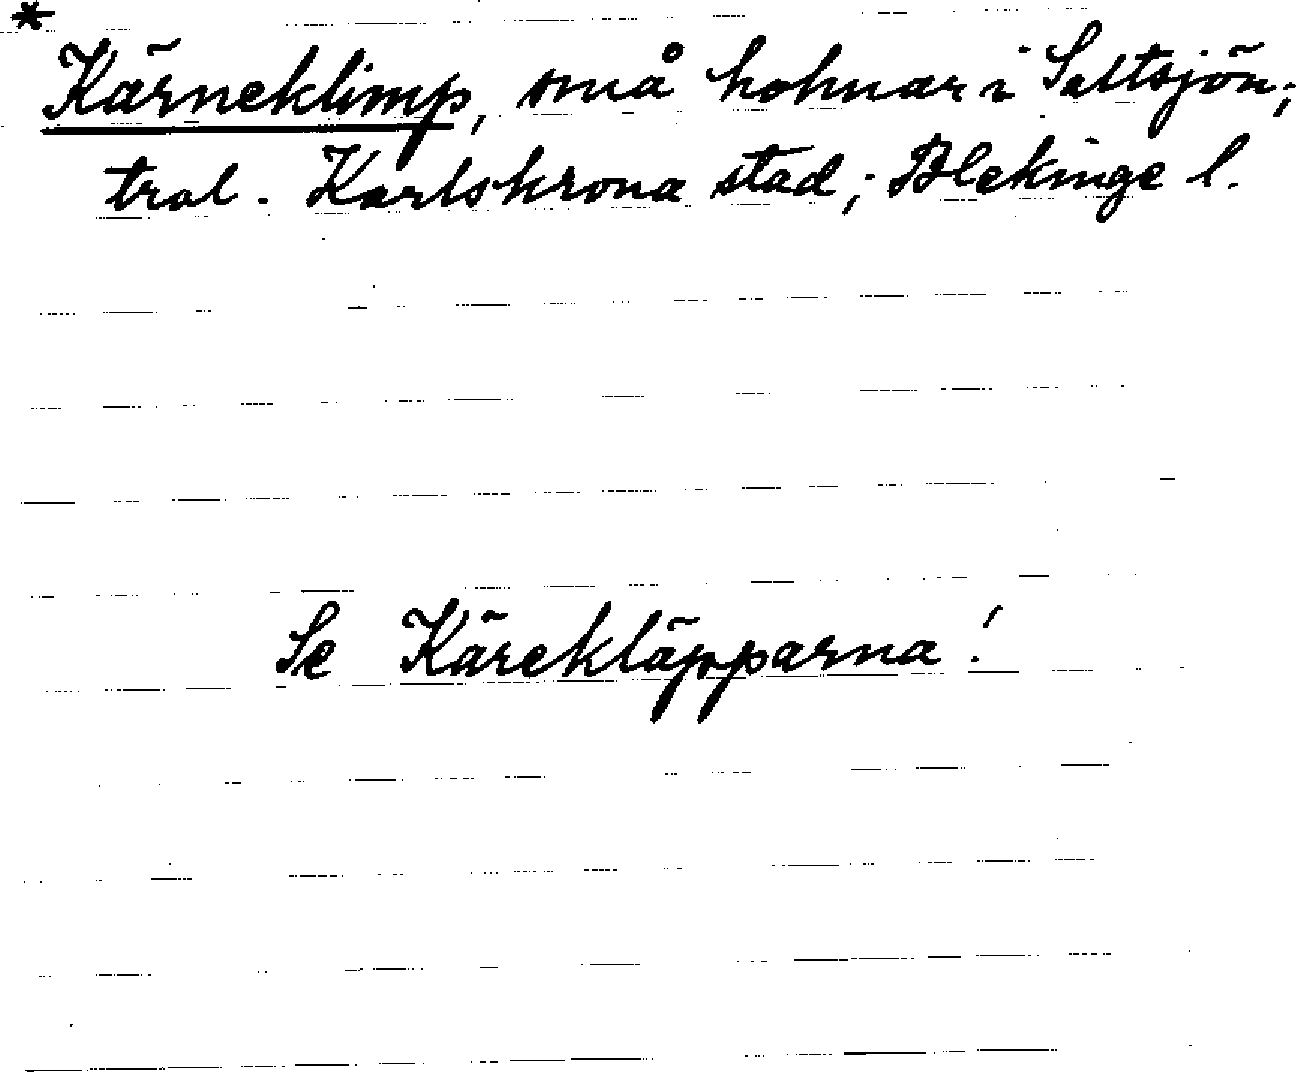 *
Kärneklimp, små holmar i Saltsjön;
trol. Karlskrona stad; Blekinge l.
Se Kärekläpparna!